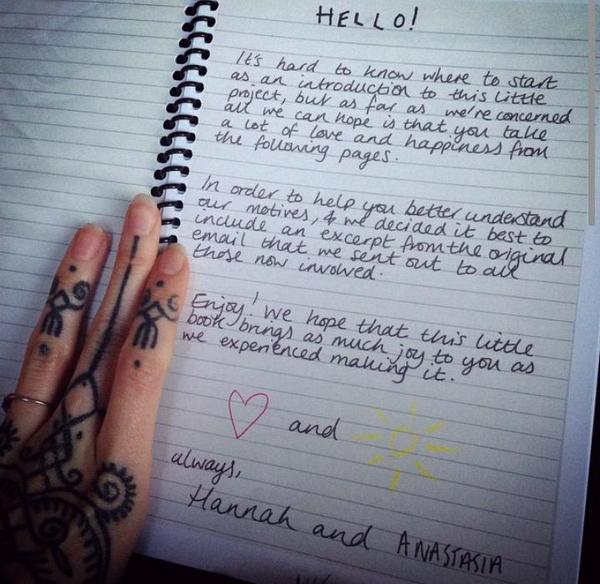 HELLO!
It's hard to know where to start
as an introduction to this little
project, but as far as we're concerned
all we can hope is that you take
a lot of love and happiness from
the following pages.
In order to help you better understand
our motives, & we decided it best to
include an excerpt from the original
email that we sent out to all
those now involved.
Enjoy! We hope that this little
book brings as much joy to you as
we experienced making it.
and
always,
Hannah and ANASTASIA